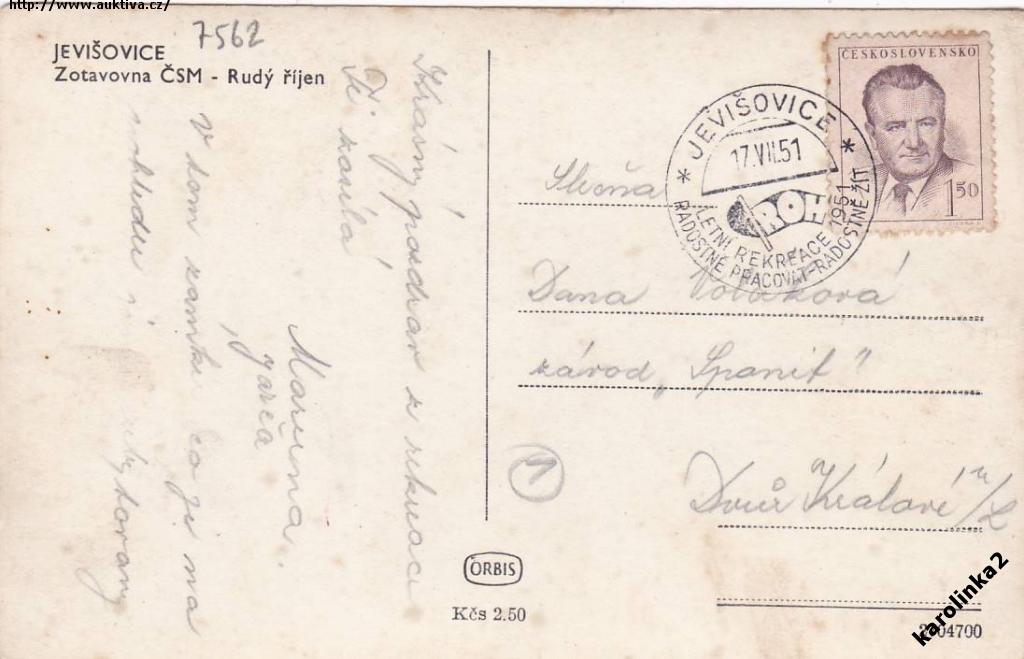 http://www.auktiva.cz/
7562
JEVIŠOVICE
Zotavovna ČSM - Rudý říjen
Krásný pozdrav z rekreace
Ti zasílá
Mařena.
Jarča
V tom zámku co je na
ČESKOSLOVENSKO
1 50
* JEVIŠOVICE *
17.VII.51
ROH
LETNÍ REKREACE 1951
RADOSTNĚ PRACOVAT-RADOSTNĚ ŽÍT
Slečna
Dana Nováková
závod "Spanit"
Dvůr Králové n/L
1
ORBIS
Kčs 2.50
04700
karolinka2